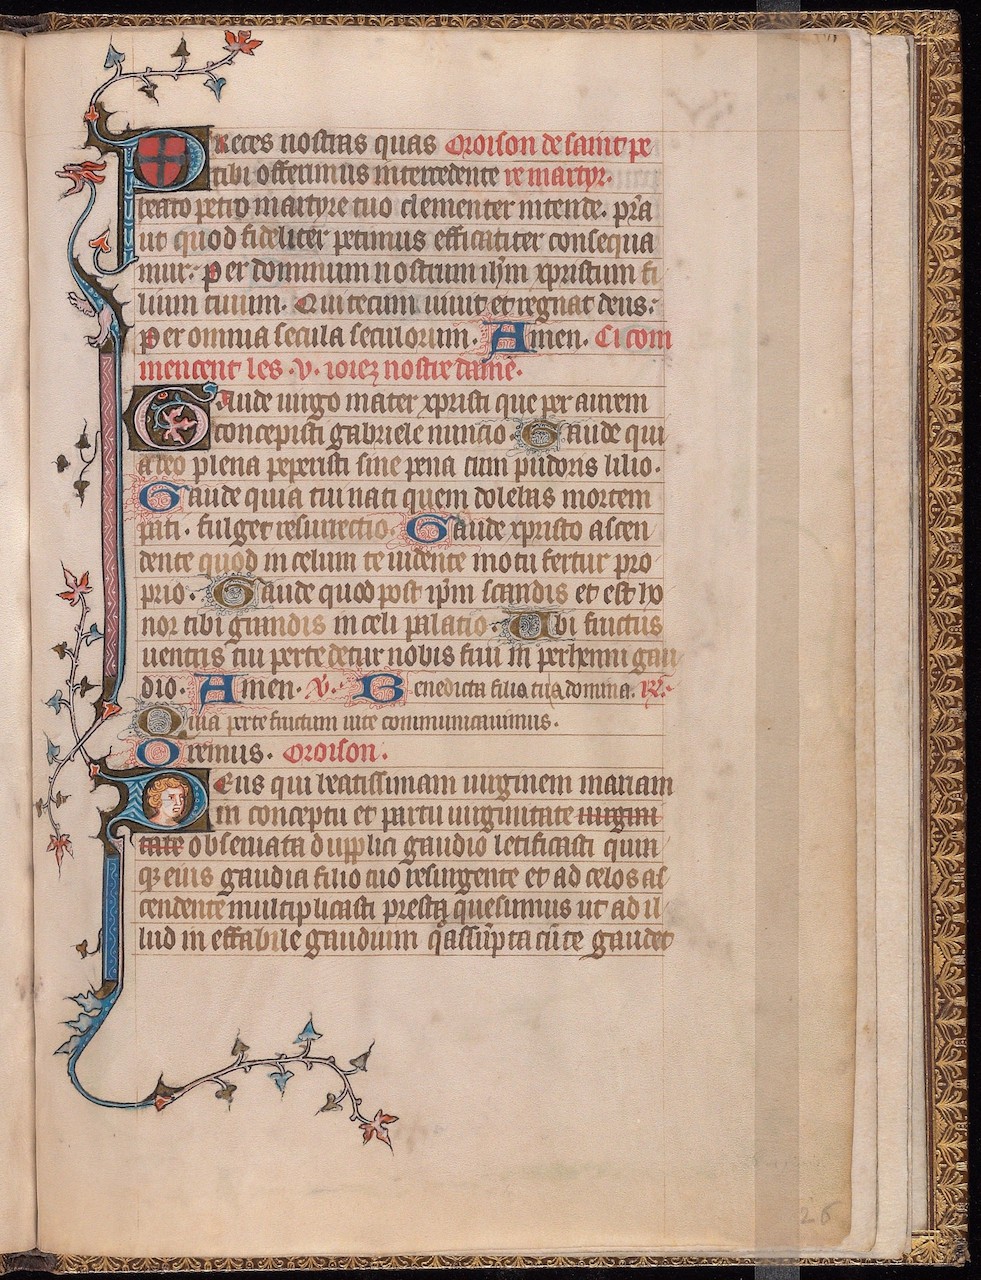 Preces nostras quas Oroison de saint pe
tibi offerimus intercedente re martyr.
beato petro martyre tuo clementer intende. pr̄a
ut quod fideliter petimus efficaciter consequa
mur. Per dominum nostrum ih̄m xpristum fi
lium tuum. Qui tecum uiuit et regnat deus.
Per omnia secula seculorum. Amen. Ci com
mencent les .v. ioiez nostre dame.
Gaude uirgo mater xpristi que per aurem
concepisti gabriele nuncio. Gaude qui
a deo plena peperisti sine pena cum pudoris lilio.
Gaude quia tui nati quem dolebas mortem
pati. fulget resurrectio. Gaude xpristo ascen
dente quod in celum te uidente motu fertur pro
prio. Gaude quod post ip̄m scandis et est ho
nor tibi grandis in celi palacio. Ubi fructus
uentris tui per te detur nobis frui in perhenni gau
dio. Amen. V. Benedicta filia tu a domina. R.
Quia per te fructum uite communicauimus.
Oremus. Oroison.
Deus qui beatissimam uirginem mariam
in conceptu et partu uirginitate uirgini
tate obseruata dupplici gaudio letificasti quin
qz eius gaudia filio tuo resurgente et ad celos as
cendente multiplicasti presta quesumus ut ad il
lud in effabile gaudium q̄ assūpta cū te gaudet
26